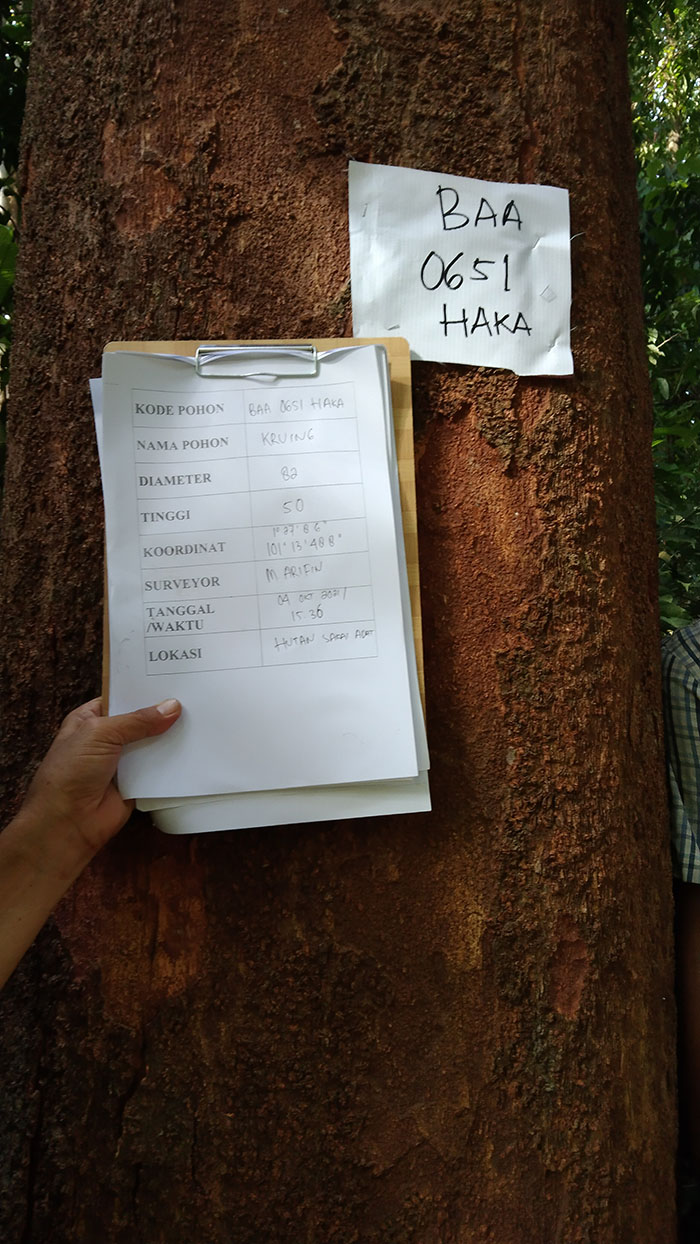 BAA
0651
HAKA
KODE POHON BAA 0651 HAKA
NAMA POHON KRUING
DIAMETER 82
TINGGI 50
KOORDINAT 1°27'8 6"
101°13'48 8"
SURVEYOR M ARIFIN
TANGGAL 04 OKT 2021/
/WAKTU 15.36
LOKASI HUTAN ADAT